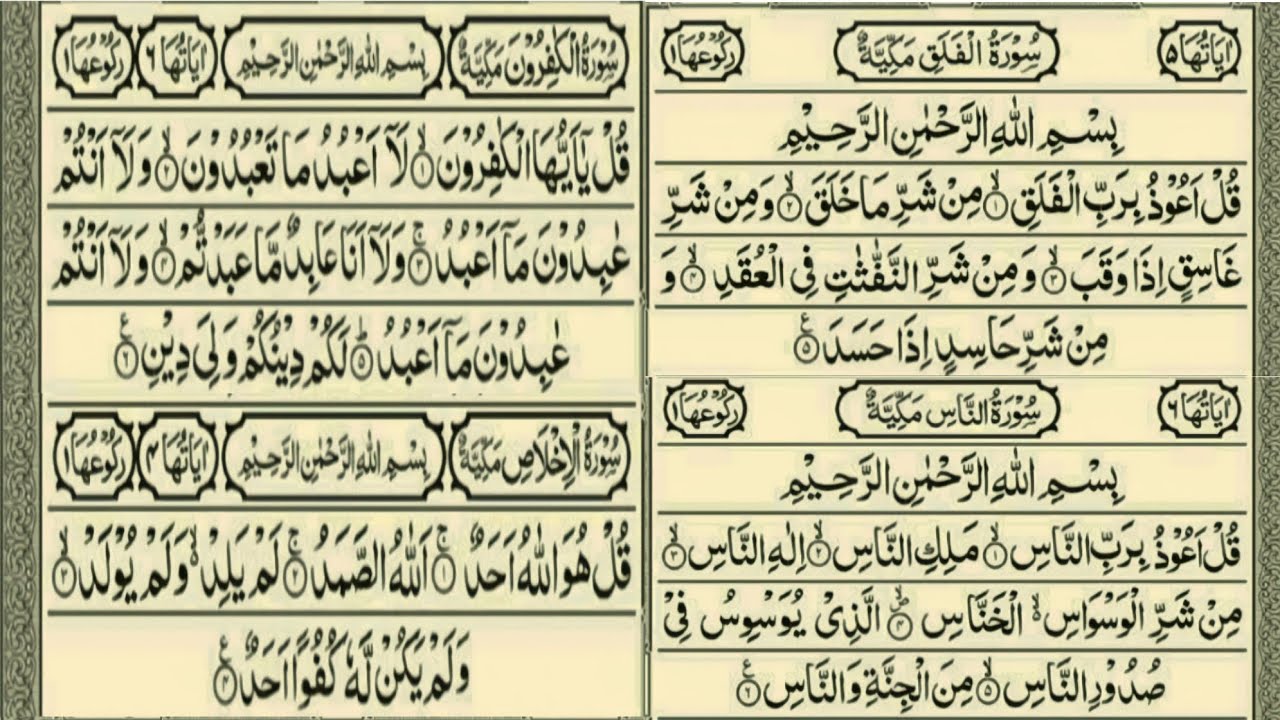 سُوْرَةُ الْكٰفِرُوْنَ مَكِّيَّةٌ بِسْمِ اللّٰهِ الرَّحْمٰنِ الرَّحِيْمِ اٰيَاتُهَا ٦ رُكُوْعُهَا ١
قُلْ يٰٓاَيُّهَا الْكٰفِرُوْنَ ۙ۝١ لَاۤ اَعْبُدُ مَا تَعْبُدُوْنَ ۙ۝٢ وَلَاۤ اَنْتُمْ
عٰبِدُوْنَ مَاۤ اَعْبُدُ ۚ۝٣ وَلَاۤ اَنَا عَابِدٌ مَّا عَبَدْتُّمْ ۙ۝٤ وَلَاۤ اَنْتُمْ
عٰبِدُوْنَ مَاۤ اَعْبُدُ ؕ۝٥ لَكُمْ دِيْنُكُمْ وَلِيَ دِيْنِ ۝٦ ع
سُوْرَةُ الْاِخْلَاصِ مَكِّيَّةٌ بِسْمِ اللّٰهِ الرَّحْمٰنِ الرَّحِيْمِ اٰيَاتُهَا ٤ رُكُوْعُهَا ١
قُلْ هُوَ اللّٰهُ اَحَدٌ ۚ۝١ اَللّٰهُ الصَّمَدُ ۚ۝٢ لَمْ يَلِدْ ۙ۬ وَلَمْ يُوْلَدْ ۙ۝٣
وَلَمْ يَكُنْ لَّهٗ كُفُوًا اَحَدٌ ۝٤ ع
اٰيَاتُهَا ٥ سُوْرَةُ الْفَلَقِ مَكِّيَّةٌ رُكُوْعُهَا ١
بِسْمِ اللّٰهِ الرَّحْمٰنِ الرَّحِيْمِ
قُلْ اَعُوْذُ بِرَبِّ الْفَلَقِ ۙ۝١ مِنْ شَرِّ مَا خَلَقَ ۙ۝٢ وَمِنْ شَرِّ
غَاسِقٍ اِذَا وَقَبَ ۙ۝٣ وَمِنْ شَرِّ النَّفّٰثٰتِ فِى الْعُقَدِ ۙ۝٤ وَ
مِنْ شَرِّ حَاسِدٍ اِذَا حَسَدَ ۝٥ ع
اٰيَاتُهَا ٦ سُوْرَةُ النَّاسِ مَكِّيَّةٌ رُكُوْعُهَا ١
بِسْمِ اللّٰهِ الرَّحْمٰنِ الرَّحِيْمِ
قُلْ اَعُوْذُ بِرَبِّ النَّاسِ ۙ۝١ مَلِكِ النَّاسِ ۙ۝٢ اِلٰهِ النَّاسِ ۙ۝٣
مِنْ شَرِّ الْوَسْوَاسِ ۙ۬ الْخَنَّاسِ ۪ۙ۝٤ الَّذِىْ يُوَسْوِسُ فِىْ
صُدُوْرِ النَّاسِ ۙ۝٥ مِنَ الْجِنَّةِ وَالنَّاسِ ۝٦ ع